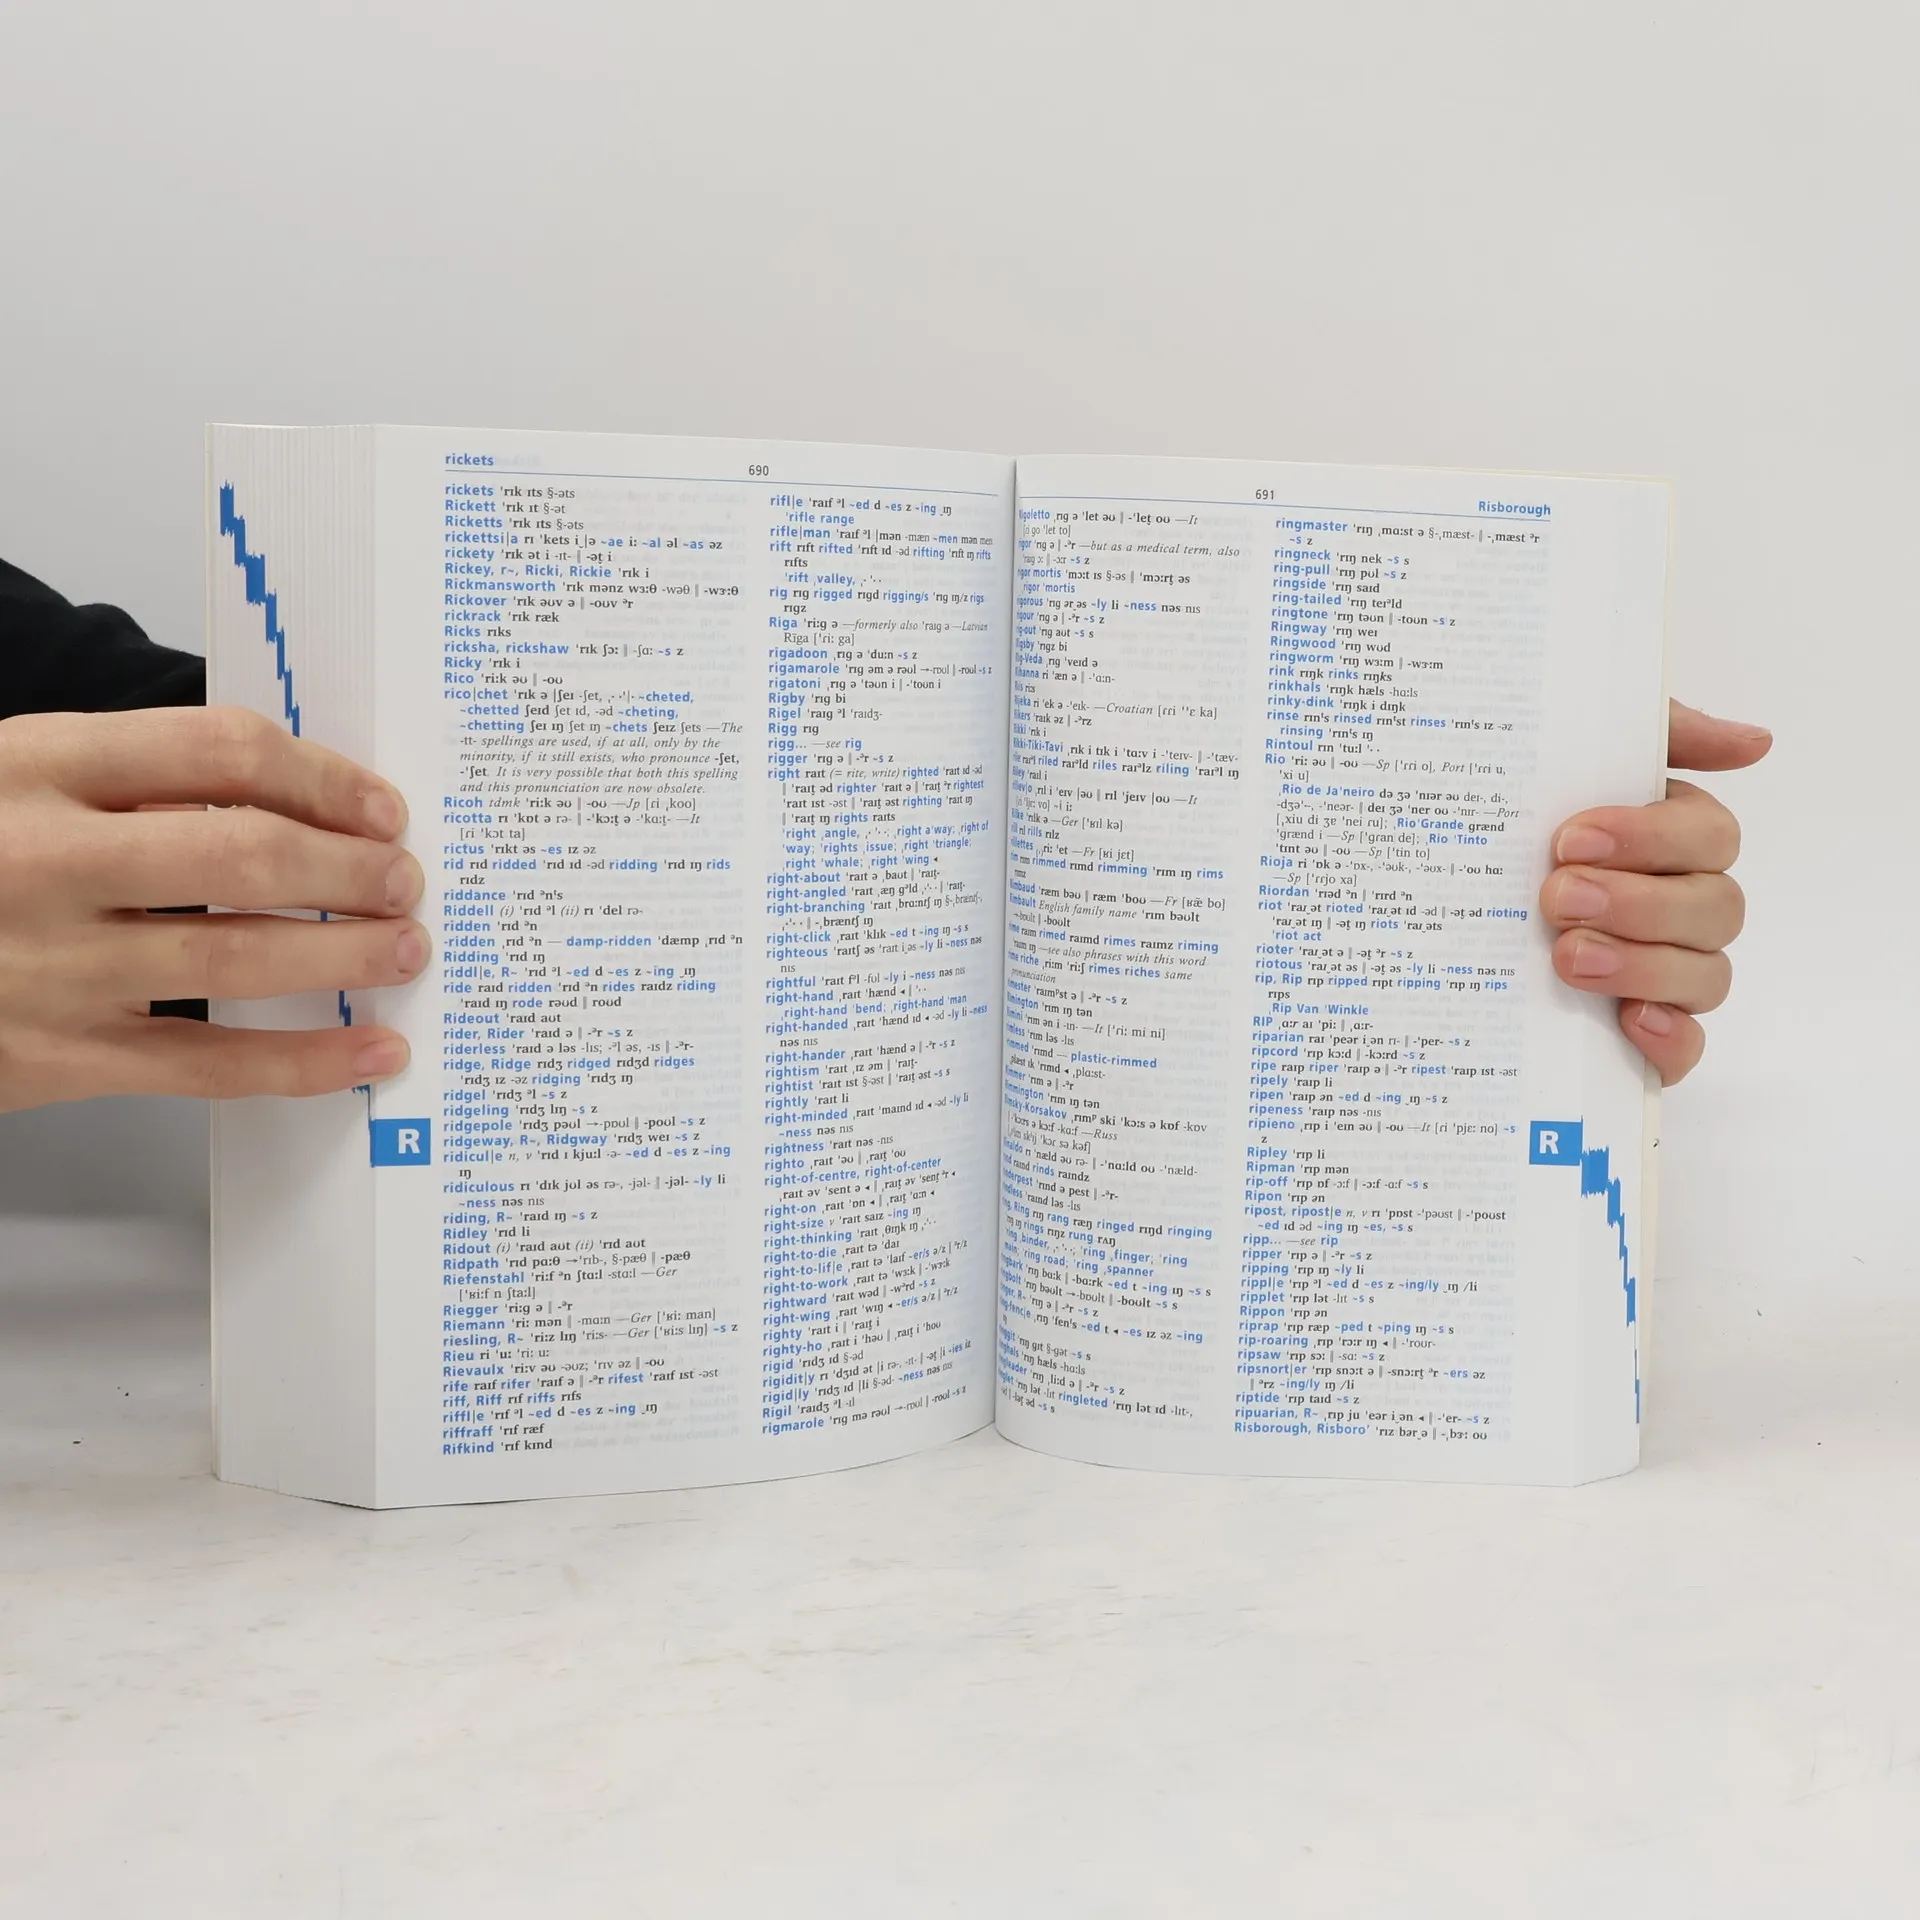 rickets
690
rickets ˈrɪk ɪts §-əts
Rickett ˈrɪk ɪt §-ət
Ricketts ˈrɪk ɪts §-əts
rickettsi|a rɪ ˈkets i‿|ə ~ae iː ~al əl ~as əz
rickety ˈrɪk ət i -ɪt- ‖ -ət̬ i
Rickey, r~, Ricki, Rickie ˈrɪk i
Rickmansworth ˈrɪk mənz wɜːθ -wəθ ‖ -wɝːθ
Rickover ˈrɪk əʊv ə ‖ -oʊv ᵊr
rickrack ˈrɪk ræk
Ricks rɪks
ricksha, rickshaw ˈrɪk ʃɔː ‖ -ʃɑː ~s z
Ricky ˈrɪk i
Rico ˈriːk əʊ ‖ -oʊ
rico|chet ˈrɪk ə |ʃeɪ -ʃet, ˌ· ·ˈ|· ~cheted,
~chetted ʃeɪd ʃet ɪd, -əd ~cheting,
~chetting ʃeɪ ɪŋ ʃet ɪŋ ~chets ʃeɪz ʃets —The
-tt- spellings are used, if at all, only by the
minority, if it still exists, who pronounce -ʃet,
-ˈʃet. It is very possible that both this spelling
and this pronunciation are now obsolete.
Ricoh tdmk ˈriːk əʊ ‖ -oʊ —Jp [ɾi ˌkoo]
ricotta rɪ ˈkɒt ə rə- ‖ -ˈkɔːt̬ ə -ˈkɑːt̬- —It
[ɾi ˈkɔt ta]
rictus ˈrɪkt əs ~es ɪz əz
rid rɪd ridded ˈrɪd ɪd -əd ridding ˈrɪd ɪŋ rids
rɪdz
riddance ˈrɪd ᵊnᵗs
Riddell (i) ˈrɪd ᵊl (ii) rɪ ˈdel rə-
ridden ˈrɪd ᵊn
-ridden ˌrɪd ᵊn — damp-ridden ˈdæmp ˌrɪd ᵊn
Ridding ˈrɪd ɪŋ
riddl|e, R~ ˈrɪd ᵊl ~ed d ~es z ~ing ‿ɪŋ
ride raɪd ridden ˈrɪd ᵊn rides raɪdz riding
ˈraɪd ɪŋ rode rəʊd ‖ roʊd
Rideout ˈraɪd aʊt
rider, Rider ˈraɪd ə ‖ -ᵊr ~s z
riderless ˈraɪd ə ləs -lɪs; -ᵊl əs, -ɪs ‖ -ᵊr-
ridge, Ridge rɪdʒ ridged rɪdʒd ridges
ˈrɪdʒ ɪz -əz ridging ˈrɪdʒ ɪŋ
ridgel ˈrɪdʒ ᵊl ~s z
ridgeling ˈrɪdʒ lɪŋ ~s z
ridgepole ˈrɪdʒ pəʊl →-pɒʊl ‖ -poʊl ~s z
ridgeway, R~, Ridgway ˈrɪdʒ weɪ ~s z
ridicul|e n, v ˈrɪd ɪ kjuːl -ə- ~ed d ~es z ~ing
ɪŋ
ridiculous rɪ ˈdɪk jʊl əs rə-, -jəl- ‖ -jəl- ~ly li
~ness nəs nɪs
riding, R~ ˈraɪd ɪŋ ~s z
Ridley ˈrɪd li
Ridout (i) ˈraɪd aʊt (ii) ˈrɪd aʊt
Ridpath ˈrɪd pɑːθ →ˈrɪb-, §-pæθ ‖ -pæθ
Riefenstahl ˈriːf ᵊn ʃtɑːl -stɑːl —Ger
[ˈʁiːf n ʃtaːl]
Riegger ˈriːg ə ‖ -ᵊr
Riemann ˈriː mən ‖ -mɑːn —Ger [ˈʁiː man]
riesling, R~ ˈriːz lɪŋ ˈriːs- —Ger [ˈʁiːs lɪŋ] ~s z
Rieu ri ˈuː ˈriː uː
Rievaulx ˈriːv əʊ -əʊz; ˈrɪv əz ‖ -oʊ
rife raɪf rifer ˈraɪf ə ‖ -ᵊr rifest ˈraɪf ɪst -əst
riff, Riff rɪf riffs rɪfs
riffl|e ˈrɪf ᵊl ~ed d ~es z ~ing ‿ɪŋ
riffraff ˈrɪf ræf
Rifkind ˈrɪf kɪnd
rifl|e ˈraɪf ᵊl ~ed d ~es z ~ing ‿ɪŋ
ˈrifle range
rifle|man ˈraɪf ᵊl |mən -mæn ~men mən men
rift rɪft rifted ˈrɪft ɪd -əd rifting ˈrɪft ɪŋ rifts
rɪfts
ˈrift ˌvalley, ˌ· ˈ· ·
rig rɪg rigged rɪgd rigging/s ˈrɪg ɪŋ/z rigs
rɪgz
Riga ˈriːg ə —formerly also ˈraɪg ə —Latvian
Rīga [ˈriː ga]
rigadoon ˌrɪg ə ˈduːn ~s z
rigamarole ˈrɪg əm ə rəʊl →-rɒʊl ‖ -roʊl ~s z
rigatoni ˌrɪg ə ˈtəʊn i ‖ -ˈtoʊn i
Rigby ˈrɪg bi
Rigel ˈraɪg ᵊl ˈraɪdʒ-
Rigg rɪg
rigg... —see rig
rigger ˈrɪg ə ‖ -ᵊr ~s z
right raɪt (= rite, write) righted ˈraɪt ɪd -əd
‖ ˈraɪt̬ əd righter ˈraɪt ə ‖ ˈraɪt̬ ᵊr rightest
ˈraɪt ɪst -əst ‖ ˈraɪt̬ əst righting ˈraɪt ɪŋ
‖ ˈraɪt̬ ɪŋ rights raɪts
ˈright ˌangle, ˌ· ˈ· ·; ˌright aˈway; ˌright of
ˈway; ˈrights ˌissue; ˌright ˈtriangle;
ˌright ˈwhale; ˌright ˈwing ◂
right-about ˈraɪt ə ˌbaʊt ‖ ˈraɪt̬-
right-angled ˈraɪt ˌæŋ gᵊld ˌ·ˈ· · ‖ ˈraɪt̬-
right-branching ˈraɪt ˌbrɑːntʃ ɪŋ §-ˌbræntʃ-,
ˌ·ˈ· · ‖ -ˌbræntʃ ɪŋ
right-click ˌraɪt ˈklɪk ~ed t ~ing ɪŋ ~s s
righteous ˈraɪtʃ əs ˈraɪt i‿əs ~ly li ~ness nəs
nɪs
rightful ˈraɪt fᵊl -fʊl ~ly i ~ness nəs nɪs
right-hand ˌraɪt ˈhænd ◂ ‖ ˈ· ·
ˌright-hand ˈbend; ˌright-hand ˈman
right-handed ˌraɪt ˈhænd ɪd ◂ -əd ~ly li ~ness
nəs nɪs
right-hander ˌraɪt ˈhænd ə ‖ -ᵊr ~s z
rightism ˈraɪt ˌɪz əm ‖ ˈraɪt̬-
rightist ˈraɪt ɪst §-əst ‖ ˈraɪt̬ əst ~s s
rightly ˈraɪt li
right-minded ˌraɪt ˈmaɪnd ɪd ◂ -əd ~ly li
~ness nəs nɪs
rightness ˈraɪt nəs -nɪs
righto ˌraɪt ˈəʊ ‖ ˌraɪt̬ ˈoʊ
right-of-centre, right-of-center
ˌraɪt əv ˈsent ə ◂ ‖ ˌraɪt̬ əv ˈsent̬ ᵊr ◂
right-on ˌraɪt ˈɒn ◂ ‖ ˌraɪt̬ ˈɑːn ◂
right-size v ˈraɪt saɪz ~ing ɪŋ
right-thinking ˈraɪt ˌθɪŋk ɪŋ ˌ·ˈ· ·
right-to-die ˌraɪt tə ˈdaɪ
right-to-lif|e ˌraɪt tə ˈlaɪf ~er/s ə/z ‖ ᵊr/z
right-to-work ˌraɪt tə ˈwɜːk ‖ -ˈwɝːk
rightward ˈraɪt wəd ‖ -wᵊrd ~s z
right-wing ˌraɪt ˈwɪŋ ◂ ~er/s ə/z ‖ ᵊr/z
righty ˈraɪt i ‖ ˈraɪt̬ i
righty-ho ˌraɪt i ˈhəʊ ‖ ˌraɪt̬ i ˈhoʊ
rigid ˈrɪdʒ ɪd §-əd
rigidit|y rɪ ˈdʒɪd ət |i rə-, -ɪt- ‖ -ət̬ |i ~ies iz
rigid|ly ˈrɪdʒ ɪd |li §-əd- ~ness nəs nɪs
Rigil ˈraɪdʒ ᵊl -ɪl
rigmarole ˈrɪg mə rəʊl →-rɒʊl ‖ -roʊl ~s z
691
Risborough
ˌrɪg ə ˈlet əʊ ‖ -ˈlet̬ oʊ —It
[ɾi go ˈlet to]
ˈrɪg ə ‖ -ᵊr —but as a medical term, also
ˈraɪg ɔː ‖ -ɔːr ~s z
mortis ˈmɔːt ɪs §-əs ‖ ˈmɔːrt̬ əs
ˌrigor ˈmortis
ˈrɪg ər‿əs ~ly li ~ness nəs nɪs
ˈrɪg ə ‖ -ᵊr ~s z
ˈrɪg aʊt ~s s
ˈrɪgz bi
ˌrɪg ˈveɪd ə
ri ˈæn ə ‖ -ˈɑːn-
ri ˈek ə -ˈeɪk- —Croatian
ˈraɪk əz ‖ -ᵊrz
ˈrɪk i
ˌrɪk i tɪk i ˈtɑːv i -ˈteɪv- ‖ -ˈtæv-
raɪᵊl riled raɪᵊld riles raɪᵊlz riling ˈraɪᵊl ɪŋ
ˈraɪl i
ˌrɪl i ˈeɪv |əʊ ‖ rɪl ˈjeɪv |oʊ —It
ˈrɪlk ə —Ger [ˈʁɪl kə]
rɪl rills rɪlz
ˈet —Fr [ʁi jɛt]
rɪm rimmed rɪmd rimming ˈrɪm ɪŋ rims
rɪmz
ˈræm bəʊ ‖ ræm ˈboʊ —Fr [ʁæ̃ bo]
English family name ˈrɪm bəʊlt
-bɒʊlt ‖ -boʊlt
raɪm rimed raɪmd rimes raɪmz riming
ˈraɪm ɪŋ —see also phrases with this word
riche ˌriːm ˈriːʃ rimes riches same
pronunciation
ˈraɪmᵖst ə ‖ -ᵊr ~s z
ˈrɪm ɪŋ tən
ˈrɪm ən i -ɪn- —It [ˈriː mi ni]
ˈrɪm ləs -lɪs
ˈrɪmd — plastic-rimmed
ˌplæst ɪk ˈrɪmd ◂ ˌplɑːst-
ˈrɪm ə ‖ -ᵊr
ˈrɪm ɪŋ tən
ˌrɪmᵖ ski ˈkɔːs ə kɒf -kɒv
—Russ
rɪ ˈnæld əʊ rə- ‖ -ˈnɑːld oʊ -ˈnæld-
raɪnd rinds raɪndz
ˈrɪnd ə pest ‖ -ᵊr-
ˈraɪnd ləs -lɪs
Ring rɪŋ rang ræŋ ringed rɪŋd ringing
ˈrɪŋ ɪŋ rings rɪŋz rung rʌŋ
ˈring ˌbinder, ˌ· ˈ· ·; ˈring ˌfinger; ˈring
main; ˈring road; ˈring ˌspanner
ˈrɪŋ bɑːk ‖ -bɑːrk ~ed t ~ing ɪŋ ~s s
ˈrɪŋ bəʊlt →-bɒʊlt ‖ -boʊlt ~s s
R~ ˈrɪŋ ə ‖ -ᵊr ~s z
ˌrɪŋ ˈfenᵗs ~ed t ◂ ~es ɪz əz ~ing
ɪŋ
ˈrɪŋ gɪt §-gət ~s s
ˈrɪŋ hæls -hɑːls
ˈrɪŋ ˌliːd ə ‖ -ᵊr ~s z
ˈrɪŋ lət -lɪt ringleted ˈrɪŋ lət ɪd -lɪt-,
-əd ‖ -lət̬ əd ~s s
ringmaster ˈrɪŋ ˌmɑːst ə §-ˌmæst- ‖ -ˌmæst ᵊr
~s z
ringneck ˈrɪŋ nek ~s s
ring-pull ˈrɪŋ pʊl ~s z
ringside ˈrɪŋ saɪd
ring-tailed ˈrɪŋ teɪᵊld
ringtone ˈrɪŋ təʊn ‖ -toʊn ~s z
Ringway ˈrɪŋ weɪ
Ringwood ˈrɪŋ wʊd
ringworm ˈrɪŋ wɜːm ‖ -wɝːm
rink rɪŋk rinks rɪŋks
rinkhals ˈrɪŋk hæls -hɑːls
rinky-dink ˈrɪŋk i dɪŋk
rinse rɪnᵗs rinsed rɪnᵗst rinses ˈrɪnᵗs ɪz -əz
rinsing ˈrɪnᵗs ɪŋ
Rintoul rɪn ˈtuːl ˈ· ·
Rio ˈriː əʊ ‖ -oʊ —Sp [ˈrri o], Port [ˈrri u,
ˈxi u]
ˌRio de Jaˈneiro də ʒə ˈnɪər əʊ deɪ-, di-,
-dʒəˈ·-, -ˈneər- ‖ deɪ ʒə ˈner oʊ -ˈnɪr- —Port
[ˌxiu di ʒɐ ˈnei ɾu]; ˌRio ˈGrande grænd
ˈgrænd i —Sp [ˈgɾan de]; ˌRio ˈTinto
ˈtɪnt əʊ ‖ -oʊ —Sp [ˈtin to]
Rioja ri ˈɒk ə -ˈɒx-, -ˈəʊk-, -ˈəʊx- ‖ -ˈoʊ hɑː
—Sp [ˈrrjo xa]
Riordan ˈrɪəd ᵊn ‖ ˈrɪrd ᵊn
riot ˈraɪ‿ət rioted ˈraɪ‿ət ɪd -əd ‖ -ət̬ əd rioting
ˈraɪ‿ət ɪŋ ‖ -ət̬ ɪŋ riots ˈraɪ‿əts
ˈriot act
rioter ˈraɪ‿ət ə ‖ -ət̬ ᵊr ~s z
riotous ˈraɪ‿ət əs ‖ -ət̬ əs ~ly li ~ness nəs nɪs
rip, Rip rɪp ripped rɪpt ripping ˈrɪp ɪŋ rips
rɪps
ˌRip Van ˈWinkle
RIP ˌɑːr aɪ ˈpiː ‖ ˌɑːr-
riparian raɪ ˈpeər i‿ən rɪ- ‖ -ˈper- ~s z
ripcord ˈrɪp kɔːd ‖ -kɔːrd ~s z
ripe raɪp riper ˈraɪp ə ‖ -ᵊr ripest ˈraɪp ɪst -əst
ripely ˈraɪp li
ripen ˈraɪp ən ~ed d ~ing ‿ɪŋ ~s z
ripeness ˈraɪp nəs -nɪs
ripieno ˌrɪp i ˈeɪn əʊ ‖ -oʊ —It [ɾi ˈpjɛː no] ~s
z
Ripley ˈrɪp li
Ripman ˈrɪp mən
rip-off ˈrɪp ɒf -ɔːf ‖ -ɔːf -ɑːf ~s s
Ripon ˈrɪp ən
ripost, ripost|e n, v rɪ ˈpɒst -ˈpəʊst ‖ -ˈpoʊst
~ed ɪd əd ~ing ɪŋ ~es, ~s s
ripp... —see rip
ripper ˈrɪp ə ‖ -ᵊr ~s z
ripping ˈrɪp ɪŋ ~ly li
rippl|e ˈrɪp ᵊl ~ed d ~es z ~ing/ly ‿ɪŋ /li
ripplet ˈrɪp lət -lɪt ~s s
Rippon ˈrɪp ən
riprap ˈrɪp ræp ~ped t ~ping ɪŋ ~s s
rip-roaring ˌrɪp ˈrɔːr ɪŋ ◂ ‖ -ˈroʊr-
ripsaw ˈrɪp sɔː ‖ -sɑː ~s z
ripsnort|er ˈrɪp snɔːt ə ‖ -snɔːrt̬ ᵊr ~ers əz
‖ ᵊrz ~ing/ly ɪŋ /li
riptide ˈrɪp taɪd ~s z
ripuarian, R~ ˌrɪp ju ˈeər i‿ən ◂ ‖ -ˈer- ~s z
Risborough, Risboro' ˈrɪz bər‿ə ‖ -ˌbɝː oʊ
R
R